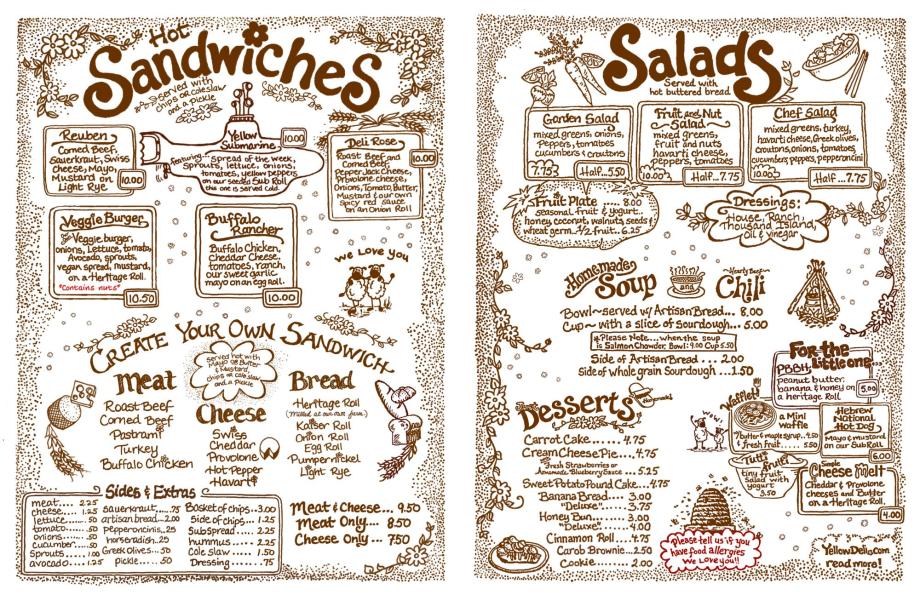 Hot
Sandwiches
served with
chips or coleslaw
and a pickle
Reuben
Corned Beef,
Sauerkraut, Swiss
Cheese, Mayo,
Mustard on
Light Rye
10.00
Yellow
Submarine
10.00
featuring... spread of the week,
sprouts, lettuce, onions,
tomatoes, yellow peppers
on our seeded Sub Roll
this one is served Cold.
Deli Rose
10.00
Roast Beef and
Corned Beef,
Pepper Jack Cheese,
Provolone cheese,
Onions, Tomato, Butter,
Mustard & our own
Spicy red sauce
on an Onion Roll
Veggie Burger
Veggie burger,
onions, Lettuce, tomato,
Avocado, sprouts,
vegan spread, mustard,
on a Heritage Roll.
*Contains nuts*
10.50
Buffalo
Rancher
Buffalo Chicken,
Cheddar Cheese,
tomatoes, ranch,
our sweet garlic
mayo on an egg Roll.
10.00
we Love you
Create Your Own Sandwich
served hot with
Mayo or Butter
& Mustard,
chips or cole slaw
and a pickle
Meat
Roast Beef
Corned Beef
Pastrami
Turkey
Buffalo Chicken
Cheese
Swiss
Cheddar
Provolone
Hot Pepper
Havarti
Bread
Heritage Roll
(Milled at our own farm.)
Kaiser Roll
Onion Roll
Egg Roll
Pumpernickel
Light Rye
Sides & Extras
meat..... 2.25
cheese..... 1.25
lettuce..... .50
tomato..... .50
onions..... .50
cucumber.. .50
Sprouts.... 1.00
avocado.... 1.25
sauerkraut.... .75
artisan bread... 2.00
Pepperoncinis.. .25
horseradish.. .25
Greek Olives... .50
pickle..... .50
Basket of chips.. 3.00
Side of chips... 1.25
Sub Spread..... 2.25
hummus..... 2.25
Cole Slaw..... 1.50
Dressing..... .75
Meat & Cheese.... 9.50
Meat Only.... 8.50
Cheese Only... 7.50
Salads
Served with
hot buttered bread
Garden Salad
mixed greens, onions,
Peppers, tomatoes
cucumbers & croutons
7.75
Half... 5.50
Fruit and Nut
Salad
mixed greens,
fruit and nuts
havarti cheese,
Peppers, tomatoes
10.00
Half... 7.75
Chef Salad
mixed greens, turkey,
havarti cheese, Greek olives,
croutons, onions, tomatoes,
cucumbers, peppers, pepperoncini
10.00
Half... 7.75
Fruit Plate ..... 8.00
seasonal fruit & yogurt...
honey, coconut, walnuts, seeds &
wheat germ. ½ fruit... 6.25
Dressings:
House, Ranch,
Thousand Island,
Oil & Vinegar
Homemade
Soup
and
~Hearty Beef~
Chili
Bowl~served w/ Artisan Bread... 8.00
Cup~ with a slice of Sourdough... 5.00
*Please Note... when the soup
is Salmon Chowder, Bowl: 9.00 Cup 5.50
Side of Artisan Bread... 2.00
Side of Whole grain Sourdough ...1.50
Desserts
Carrot Cake...... 4.75
Cream Cheese Pie.... 4.75
w/ Fresh Strawberries or
Homemade Blueberry Sauce ... 5.25
Sweet Potato Pound Cake.... 4.75
Banana Bread.... 3.00
"Deluxe"... 3.75
Honey Bun.... 3.00
"Deluxe"... 4.00
Cinnamon Roll... 4.75
Carob Brownie... 2.50
Cookie .... 2.00
For the
little one...
PBBH
peanut butter,
banana & honey on
a heritage Roll
5.00
Waffle!!
a Mini
Waffle
w/ butter & maple syrup.. 4.50
w/ fresh fruit..... 5.50
Hebrew
National
Hot Dog
Mayo & mustard
on our Sub Roll
6.00
Tutti Frutti
tiny fruit
Salad with
yogurt
3.50
Simple
Cheese Melt
Cheddar & Provolone
cheeses and Butter
on a Heritage Roll.
4.00
Please tell us if you
have food allergies
We Love you!!
YellowDeli.com
read more!